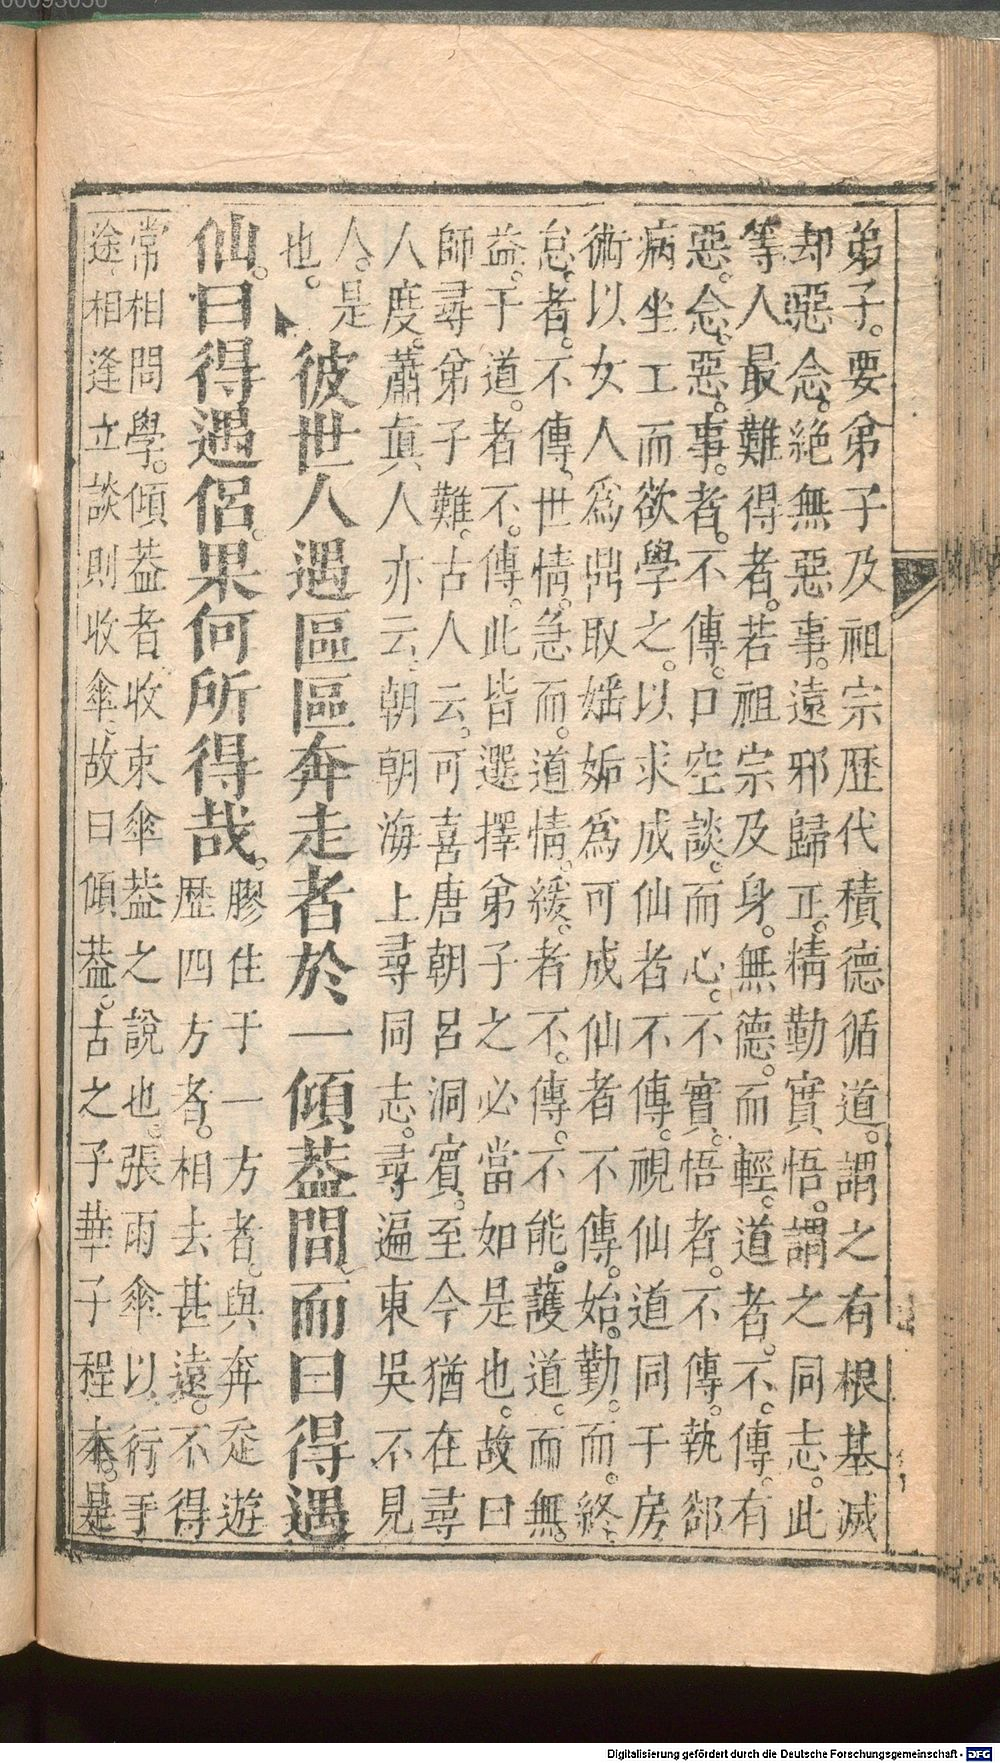 弟子。要弟子及祖宗歷代積德循道。謂之有根基滅
却惡念。絕無惡事。遠邪歸正。精勤實悟。謂之同志。此
等人最難得者。若祖宗及身。無德。而輕。道者。不。傳。有
惡。念。惡。事。者。不傳。口空談。而心。不實。悟者。不傳。執鄒
病坐工而欲學之。以求成仙者不傳。視仙道同于房
術以女人爲鼎取婬姤爲可成仙者不傳。始。勤。而。終。
怠。者。不傳、世情。急而。道情。緩。者不。傳。不能。護道。而無。
益。于道。者不。傳。此皆選擇弟子之必當如是也。故曰
師尋弟子難。古人云。可喜唐朝呂洞賓。至今猶在尋
人度。蕭眞人亦云。朝朝海上尋同志。尋遍東吳不見
人。是
也。
彼世人遇區區奔走者於一傾葢間而曰得遇
仙。曰得遇侶。果何所得哉。
膠住于一方者。與奔走遊
歷四方者。相去甚遠。不得
常相問學。傾葢者。收束傘葢之說也。張雨傘以行于
途。相逢立談則收傘。故曰傾葢。古之子華子程本。是
Digitalisierung gefördert durch die Deutsche Forschungsgemeinschaft - DFG